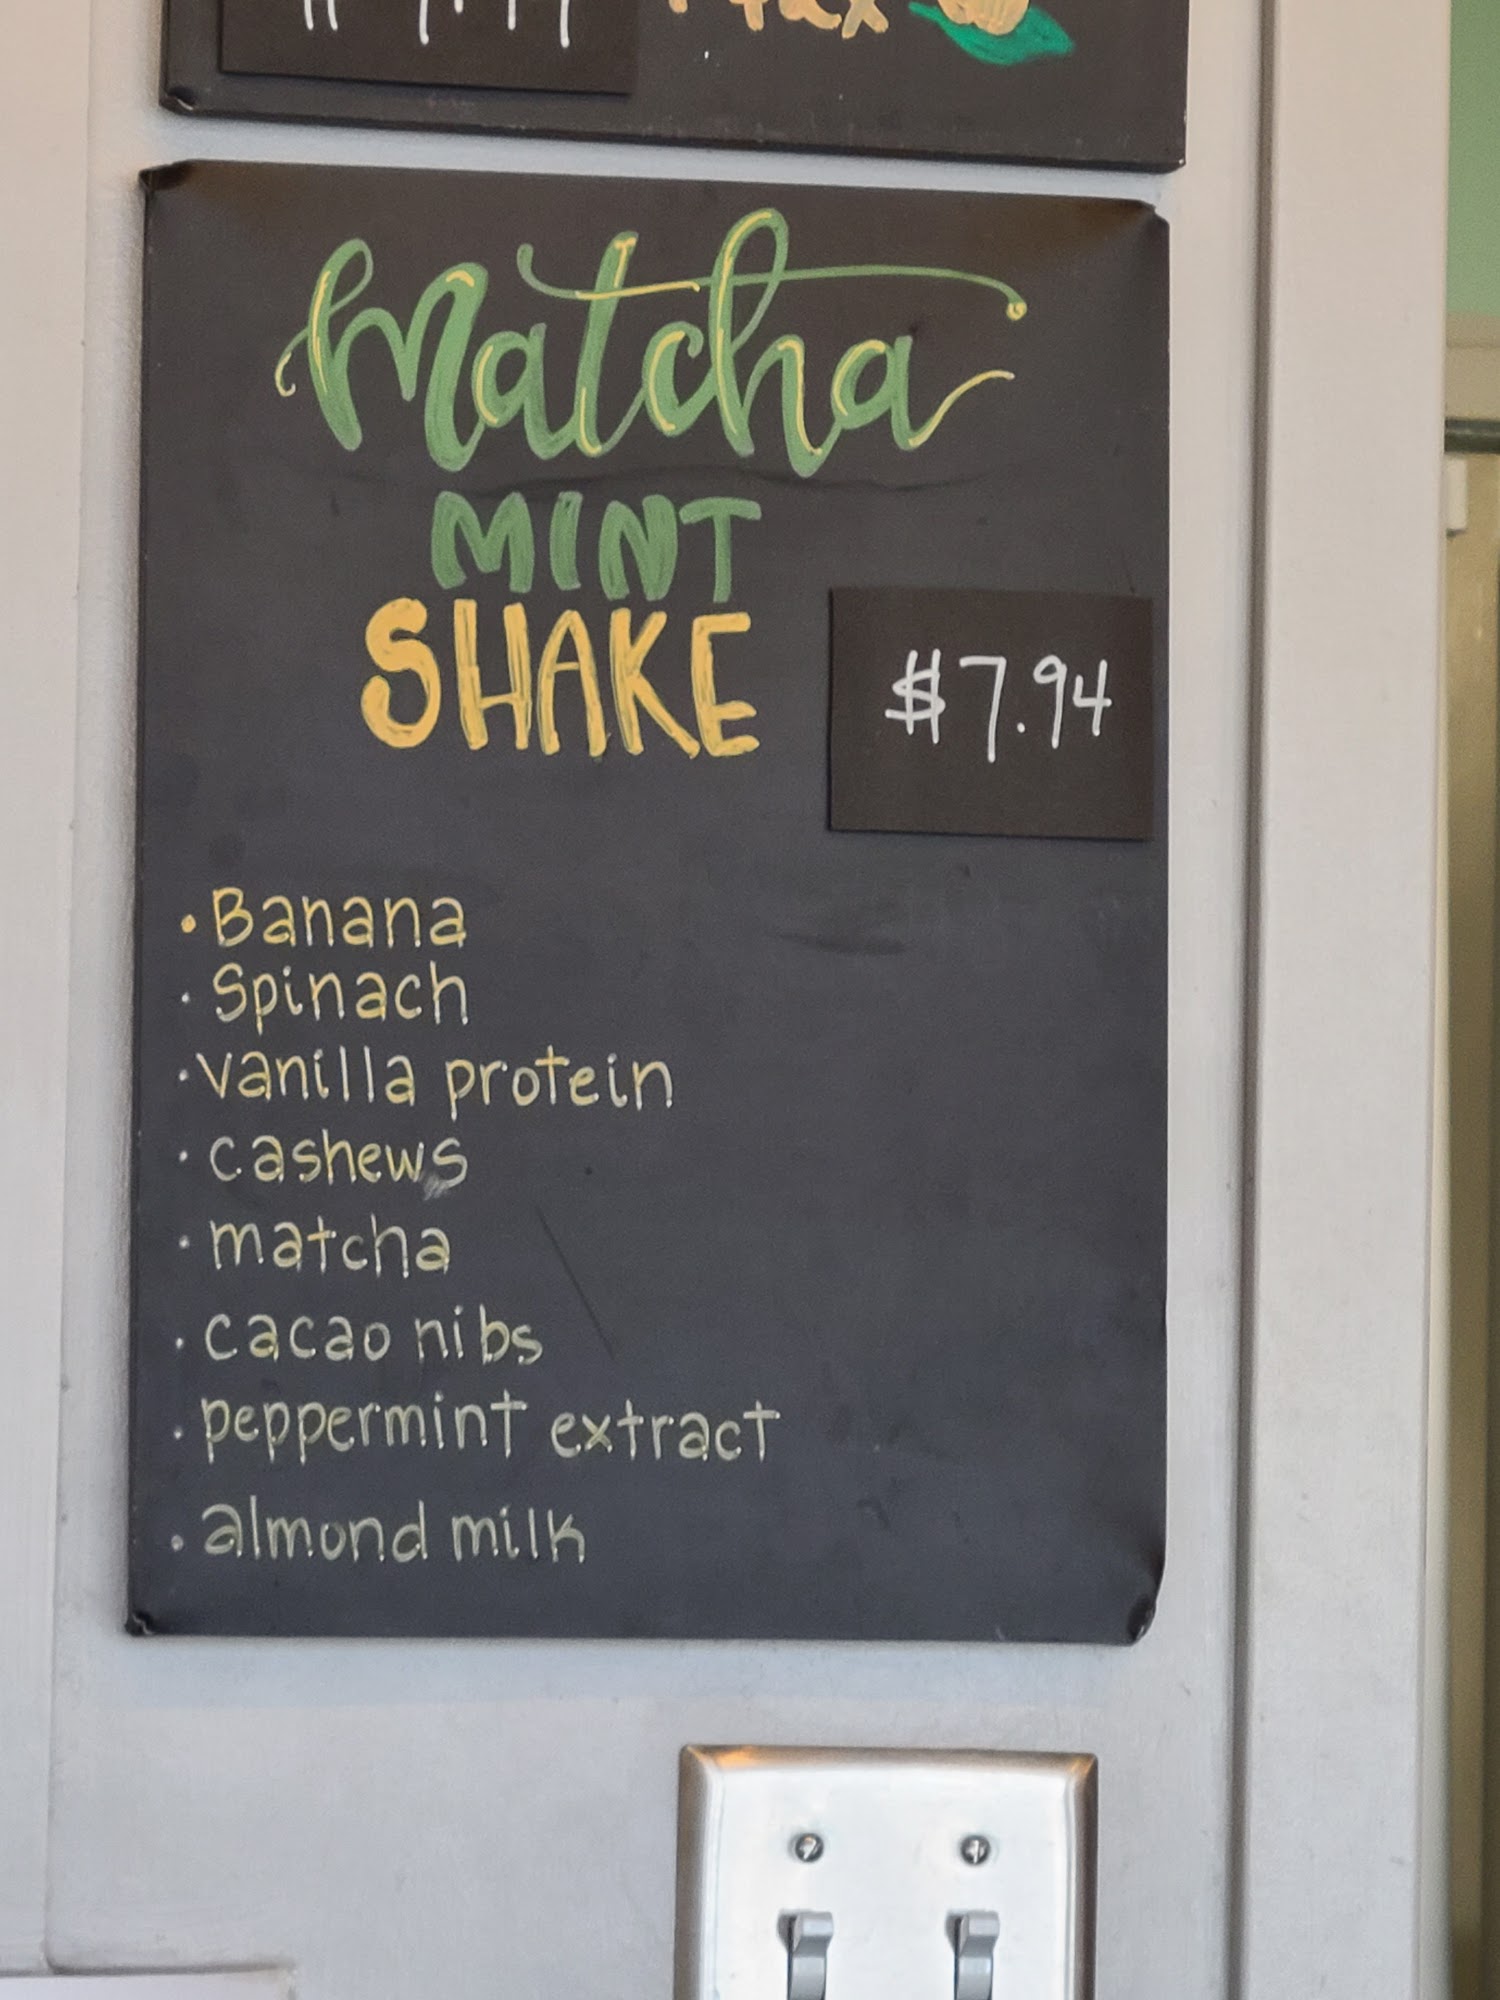 +tax
Matcha
MINT
SHAKE
$7.94
• Banana
• Spinach
• vanilla protein
• cashews
• matcha
• cacao nibs
• peppermint extract
• almond milk